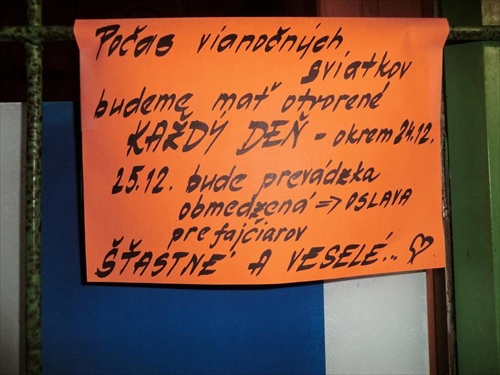 Počas vianočných
sviatkov
budeme mať otvorené
KAŽDÝ DEŇ - okrem 24.12.
25.12. bude prevádzka
obmedzená => OSLAVA
pre fajčiarov
ŠŤASTNÉ A VESELÉ... ♡